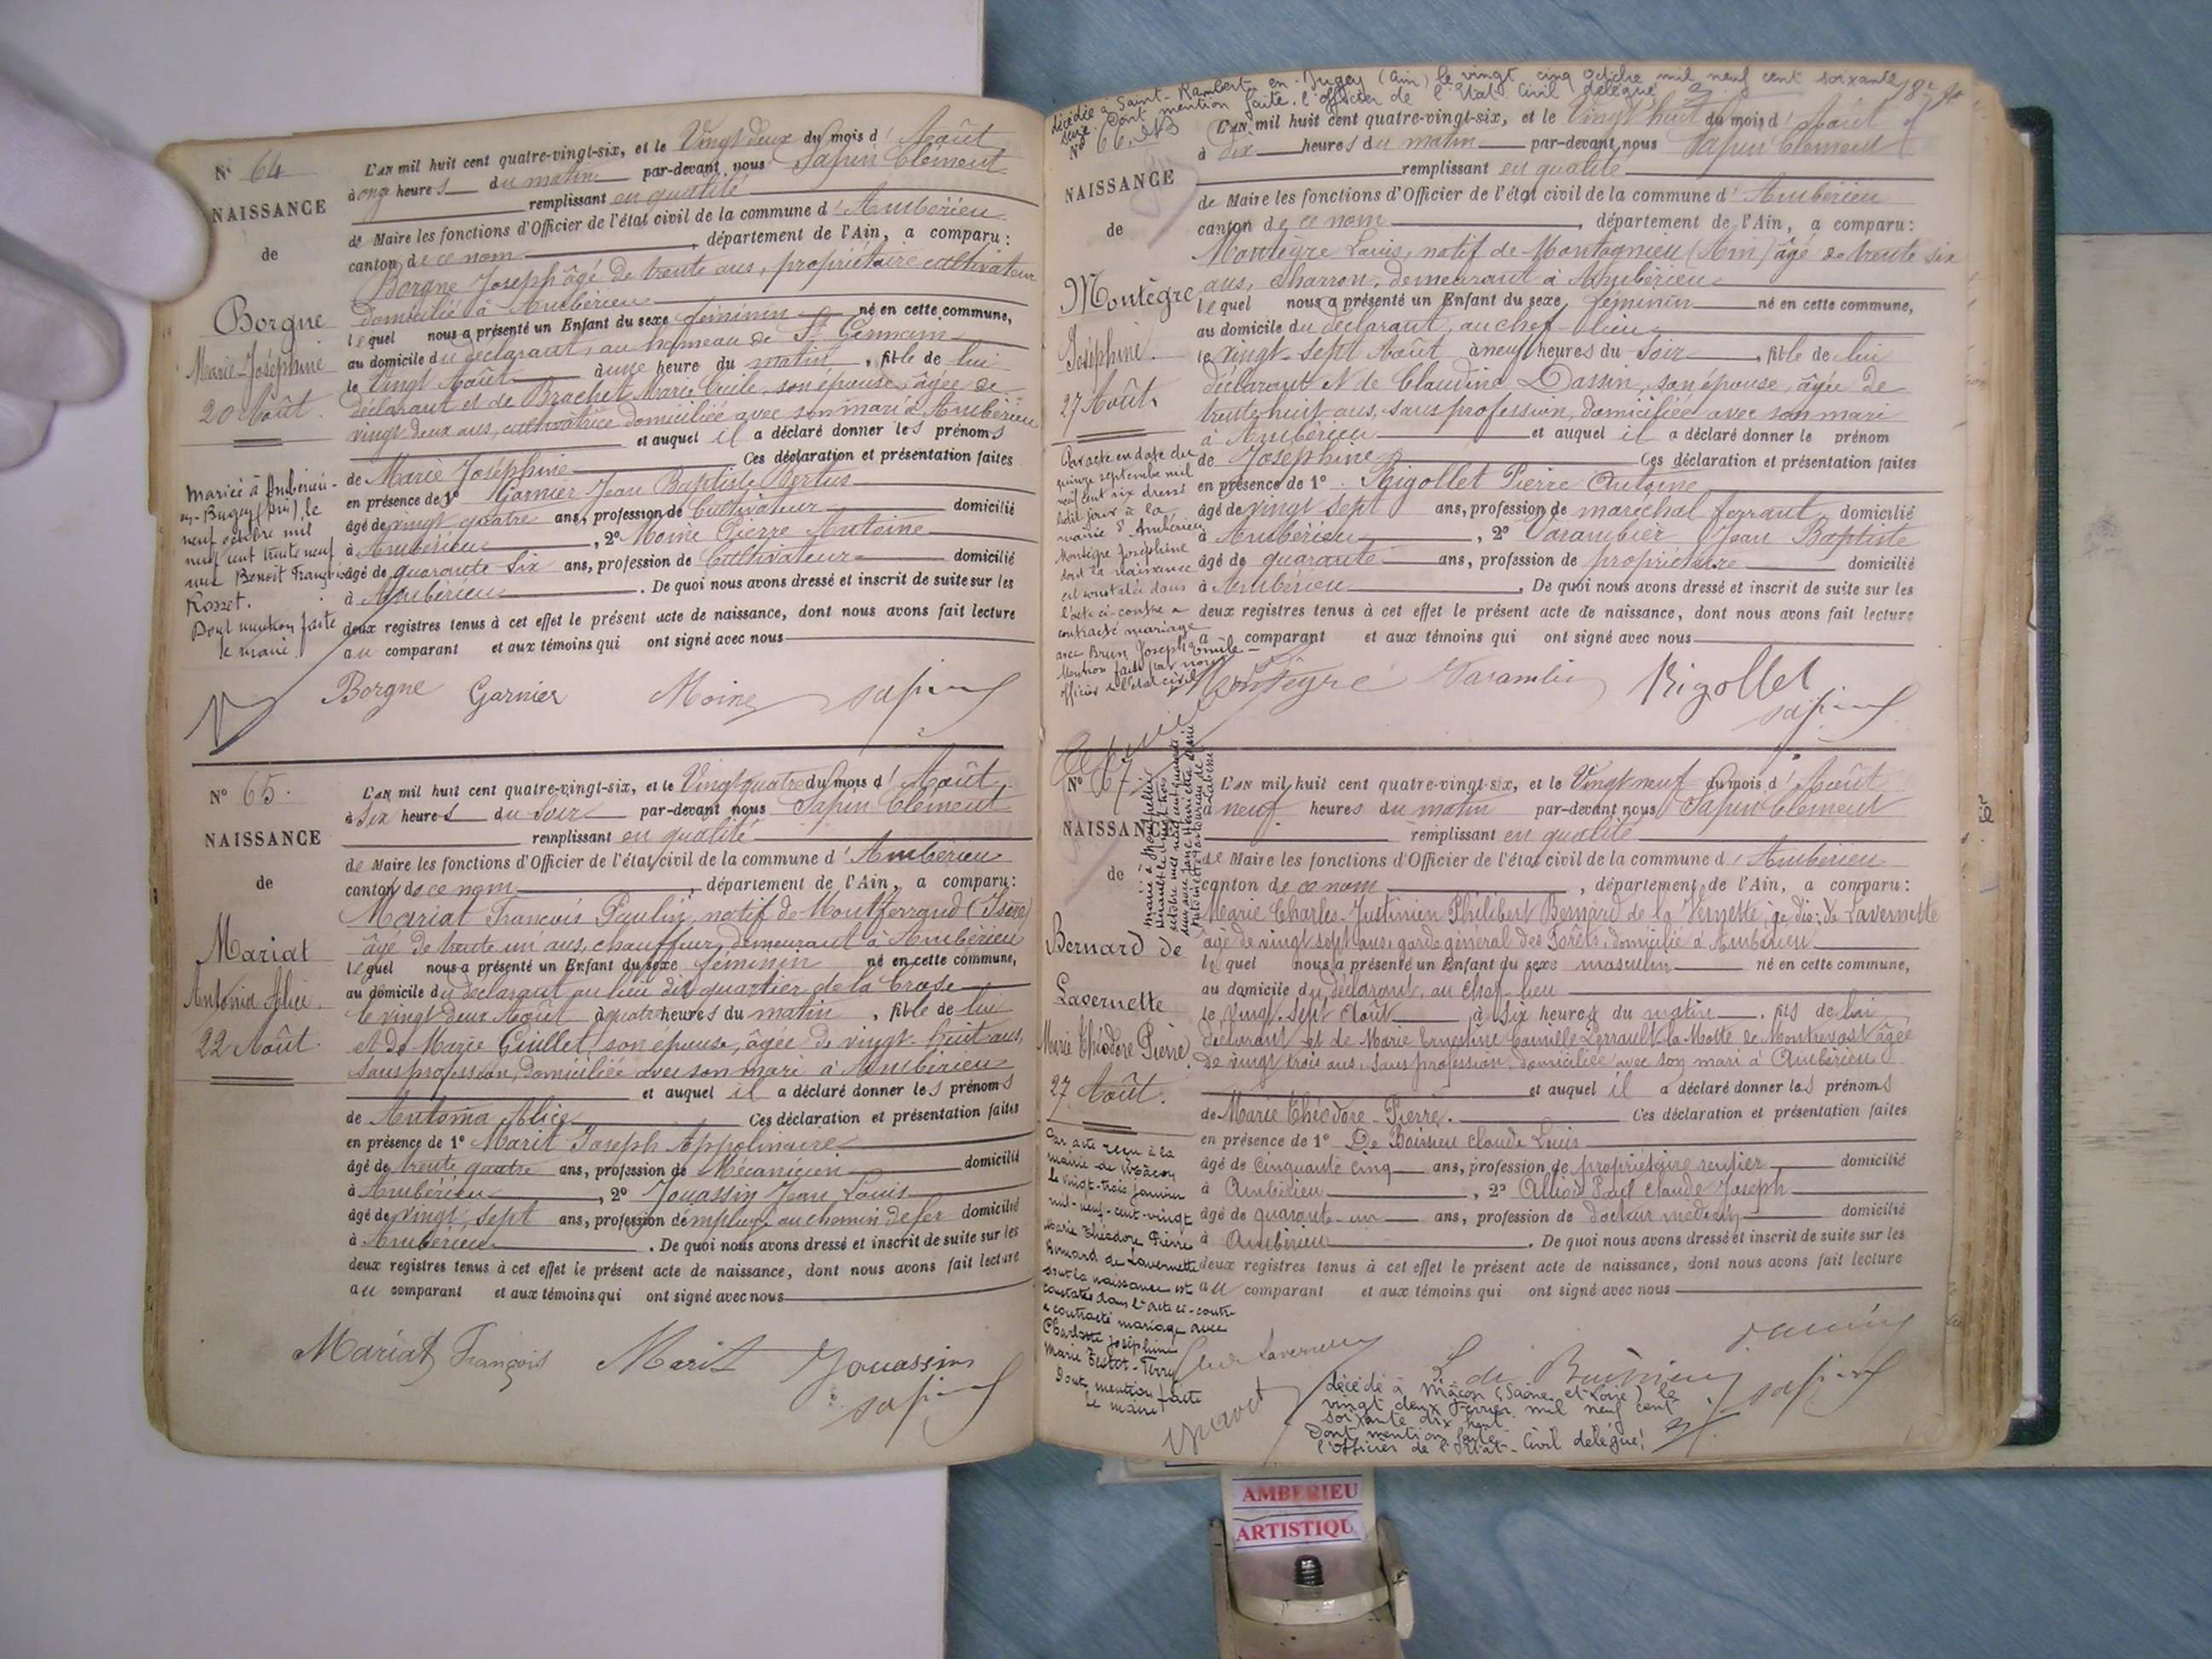 N° 64
NAISSANCE
de
Borgne
Marie-Joséphine
20 Août.
Mariée à Ambérieu-
en-Bugey (Ain) le
neuf octobre mil
neuf cent trente neuf
avec Benoit François
Rosset.
Dont mention faite
le maire
L'AN mil huit cent quatre-vingt-six, et le Vingt deux du mois d'Août
à onze heures du matin par-devant nous Sapin Clément
remplissant en qualité
de Maire les fonctions d'Officier de l'état civil de la commune d'Ambérieu
canton de ce nom, département de l'Ain, a comparu:
Borgne Joseph âgé de trente ans, propriétaire cultivateur
domicilié à Ambérieu
lequel nous a présenté un Enfant du sexe féminin né en cette commune,
au domicile du déclarant, au hameau de St Germain
le Vingt Août à une heure du matin, fille de lui
déclarant et de Brachet Marie Cécile, son épouse, âgée de
vingt deux ans, cultivatrice domiciliée avec son mari à Ambérieu
et auquel il a déclaré donner les prénoms
de Marie Joséphine Ces déclaration et présentation faites
en présence de 1° Garnier Jean Baptiste Vertus
âgé de vingt quatre ans, profession de Cultivateur domicilié
à Ambérieu, 2° Moine Pierre Antoine
âgé de quarante six ans, profession de Cultivateur domicilié
à Ambérieu. De quoi nous avons dressé et inscrit de suite sur les
deux registres tenus à cet effet le présent acte de naissance, dont nous avons fait lecture
au comparant et aux témoins qui ont signé avec nous
Borgne Garnier Moine Sapin
N° 65.
NAISSANCE
de
Mariat
Antonia Alice.
22 Août.
L'AN mil huit cent quatre-vingt-six, et le Vingt quatre du mois d'Août
à six heures du soir par-devant nous Sapin Clément
remplissant en qualité
de Maire les fonctions d'Officier de l'état civil de la commune d'Ambérieu
canton de ce nom, département de l'Ain, a comparu:
Mariat François Paulin, natif de Montferrand (Isère)
âgé de trente un ans, chauffeur, demeurant à Ambérieu
lequel nous a présenté un Enfant du sexe féminin né en cette commune,
au domicile du déclarant au lieu dit quartier de la Crose
le vingt deux Août à quatre heures du matin, fille de lui
et de Marie Guillet, son épouse, âgée de vingt-huit ans,
sans profession, domiciliée avec son mari à Ambérieu
et auquel il a déclaré donner les prénoms
de Antonia Alice Ces déclaration et présentation faites
en présence de 1° Marit Joseph Appolinaire
âgé de trente quatre ans, profession de Mécanicien domicilié
à Ambérieu, 2° Jouassin Jean Louis
âgé de vingt sept ans, profession d'employé au chemin de fer domicilié
à Ambérieu. De quoi nous avons dressé et inscrit de suite sur les
deux registres tenus à cet effet le présent acte de naissance, dont nous avons fait lecture
au comparant et aux témoins qui ont signé avec nous
Mariat François Marit Jouassin
Sapin
décédée à Saint-Rambert-en-Bugey (Ain) le vingt cinq octobre mil neuf cent soixante
seize. Dont mention faite. l'officier de l'Etat Civil délégué
N° 66.
NAISSANCE
de
Montègre
Joséphine.
27 Août.
Par acte en date du
quinze septembre mil
neuf cent six dressé
ledit jour à la
mairie d'Ambérieu
Montègre Joséphine
dont la naissance
est constatée dans
l'acte ci-contre a
contracté mariage
avec Brun Joseph Emile
Mention faite par nous
officier de l'état civil
L'AN mil huit cent quatre-vingt-six, et le Vingt huit du mois d'Août
à dix heures du matin par-devant nous Sapin Clément
remplissant en qualité
de Maire les fonctions d'Officier de l'état civil de la commune d'Ambérieu
canton de ce nom, département de l'Ain, a comparu:
Montègre Louis, natif de Montagnieu (Ain) âgé de trente six
ans, charron, demeurant à Ambérieu
lequel nous a présenté un Enfant du sexe féminin né en cette commune,
au domicile du déclarant, au chef-lieu
le vingt-sept Août à neuf heures du soir, fille de lui
déclarant et de Claudine Dassin, son épouse, âgée de
trente huit ans, sans profession, domiciliée avec son mari
à Ambérieu et auquel il a déclaré donner le prénom
de Joséphine Ces déclaration et présentation faites
en présence de 1° Rigollet Pierre Antoine
âgé de vingt sept ans, profession de maréchal ferrant domicilié
à Ambérieu, 2° Varambier Jean Baptiste
âgé de quarante ans, profession de propriétaire domicilié
à Ambérieu. De quoi nous avons dressé et inscrit de suite sur les
deux registres tenus à cet effet le présent acte de naissance, dont nous avons fait lecture
a comparant et aux témoins qui ont signé avec nous
Montègre Varambier Rigollet
Sapin
N° 67
NAISSANCE
de
Bernard de
Lavernette
Marie Théodore Pierre.
27 Août.
Par acte reçu à la
mairie de Mâcon
le vingt-trois janvier
mil-neuf-cent-vingt
Marie Théodore Pierre
Bernard de Lavernette
dont la naissance est
constatée dans l'acte ci-contre
a contracté mariage avec
Charlotte Joséphine
Marie Testot-Ferry
Dont mention faite
Le maire
L'AN mil huit cent quatre-vingt-six, et le Vingt neuf du mois d'Août
à neuf heures du matin par-devant nous Sapin Clément
remplissant en qualité
de Maire les fonctions d'Officier de l'état civil de la commune d'Ambérieu
canton de ce nom, département de l'Ain, a comparu:
Marie Charles-Justinien Philibert Bernard de la Vernette, je dis: de Lavernette
âgé de vingt sept ans, garde général des Forêts, domicilié à Ambérieu
lequel nous a présenté un Enfant du sexe masculin né en cette commune,
au domicile du déclarant, au chef-lieu
le vingt-sept Août à six heures du matin, fils de lui
déclarant et de Marie Ernestine Camille Perrault la Motte de Montrevost âgée
de vingt trois ans, sans profession domiciliée avec son mari à Ambérieu
et auquel il a déclaré donner les prénoms
de Marie Théodore-Pierre. Ces déclaration et présentation faites
en présence de 1° De Boissieu Claude Louis
âgé de cinquante cinq ans, profession de propriétaire rentier domicilié
à Ambérieu, 2° Paul Claude Joseph
âgé de quarante-un ans, profession de docteur médecin domicilié
à Ambérieu. De quoi nous avons dressé et inscrit de suite sur les
deux registres tenus à cet effet le présent acte de naissance, dont nous avons fait lecture
au comparant et aux témoins qui ont signé avec nous
L de Boissieu Sapin
décédé à Mâcon (Saône-et-Loire) le
vingt deux février mil neuf cent
soixante dix huit
Dont mention faite
l'officier de l'Etat-Civil délégué,
AMBERIEU
ARTISTIQU